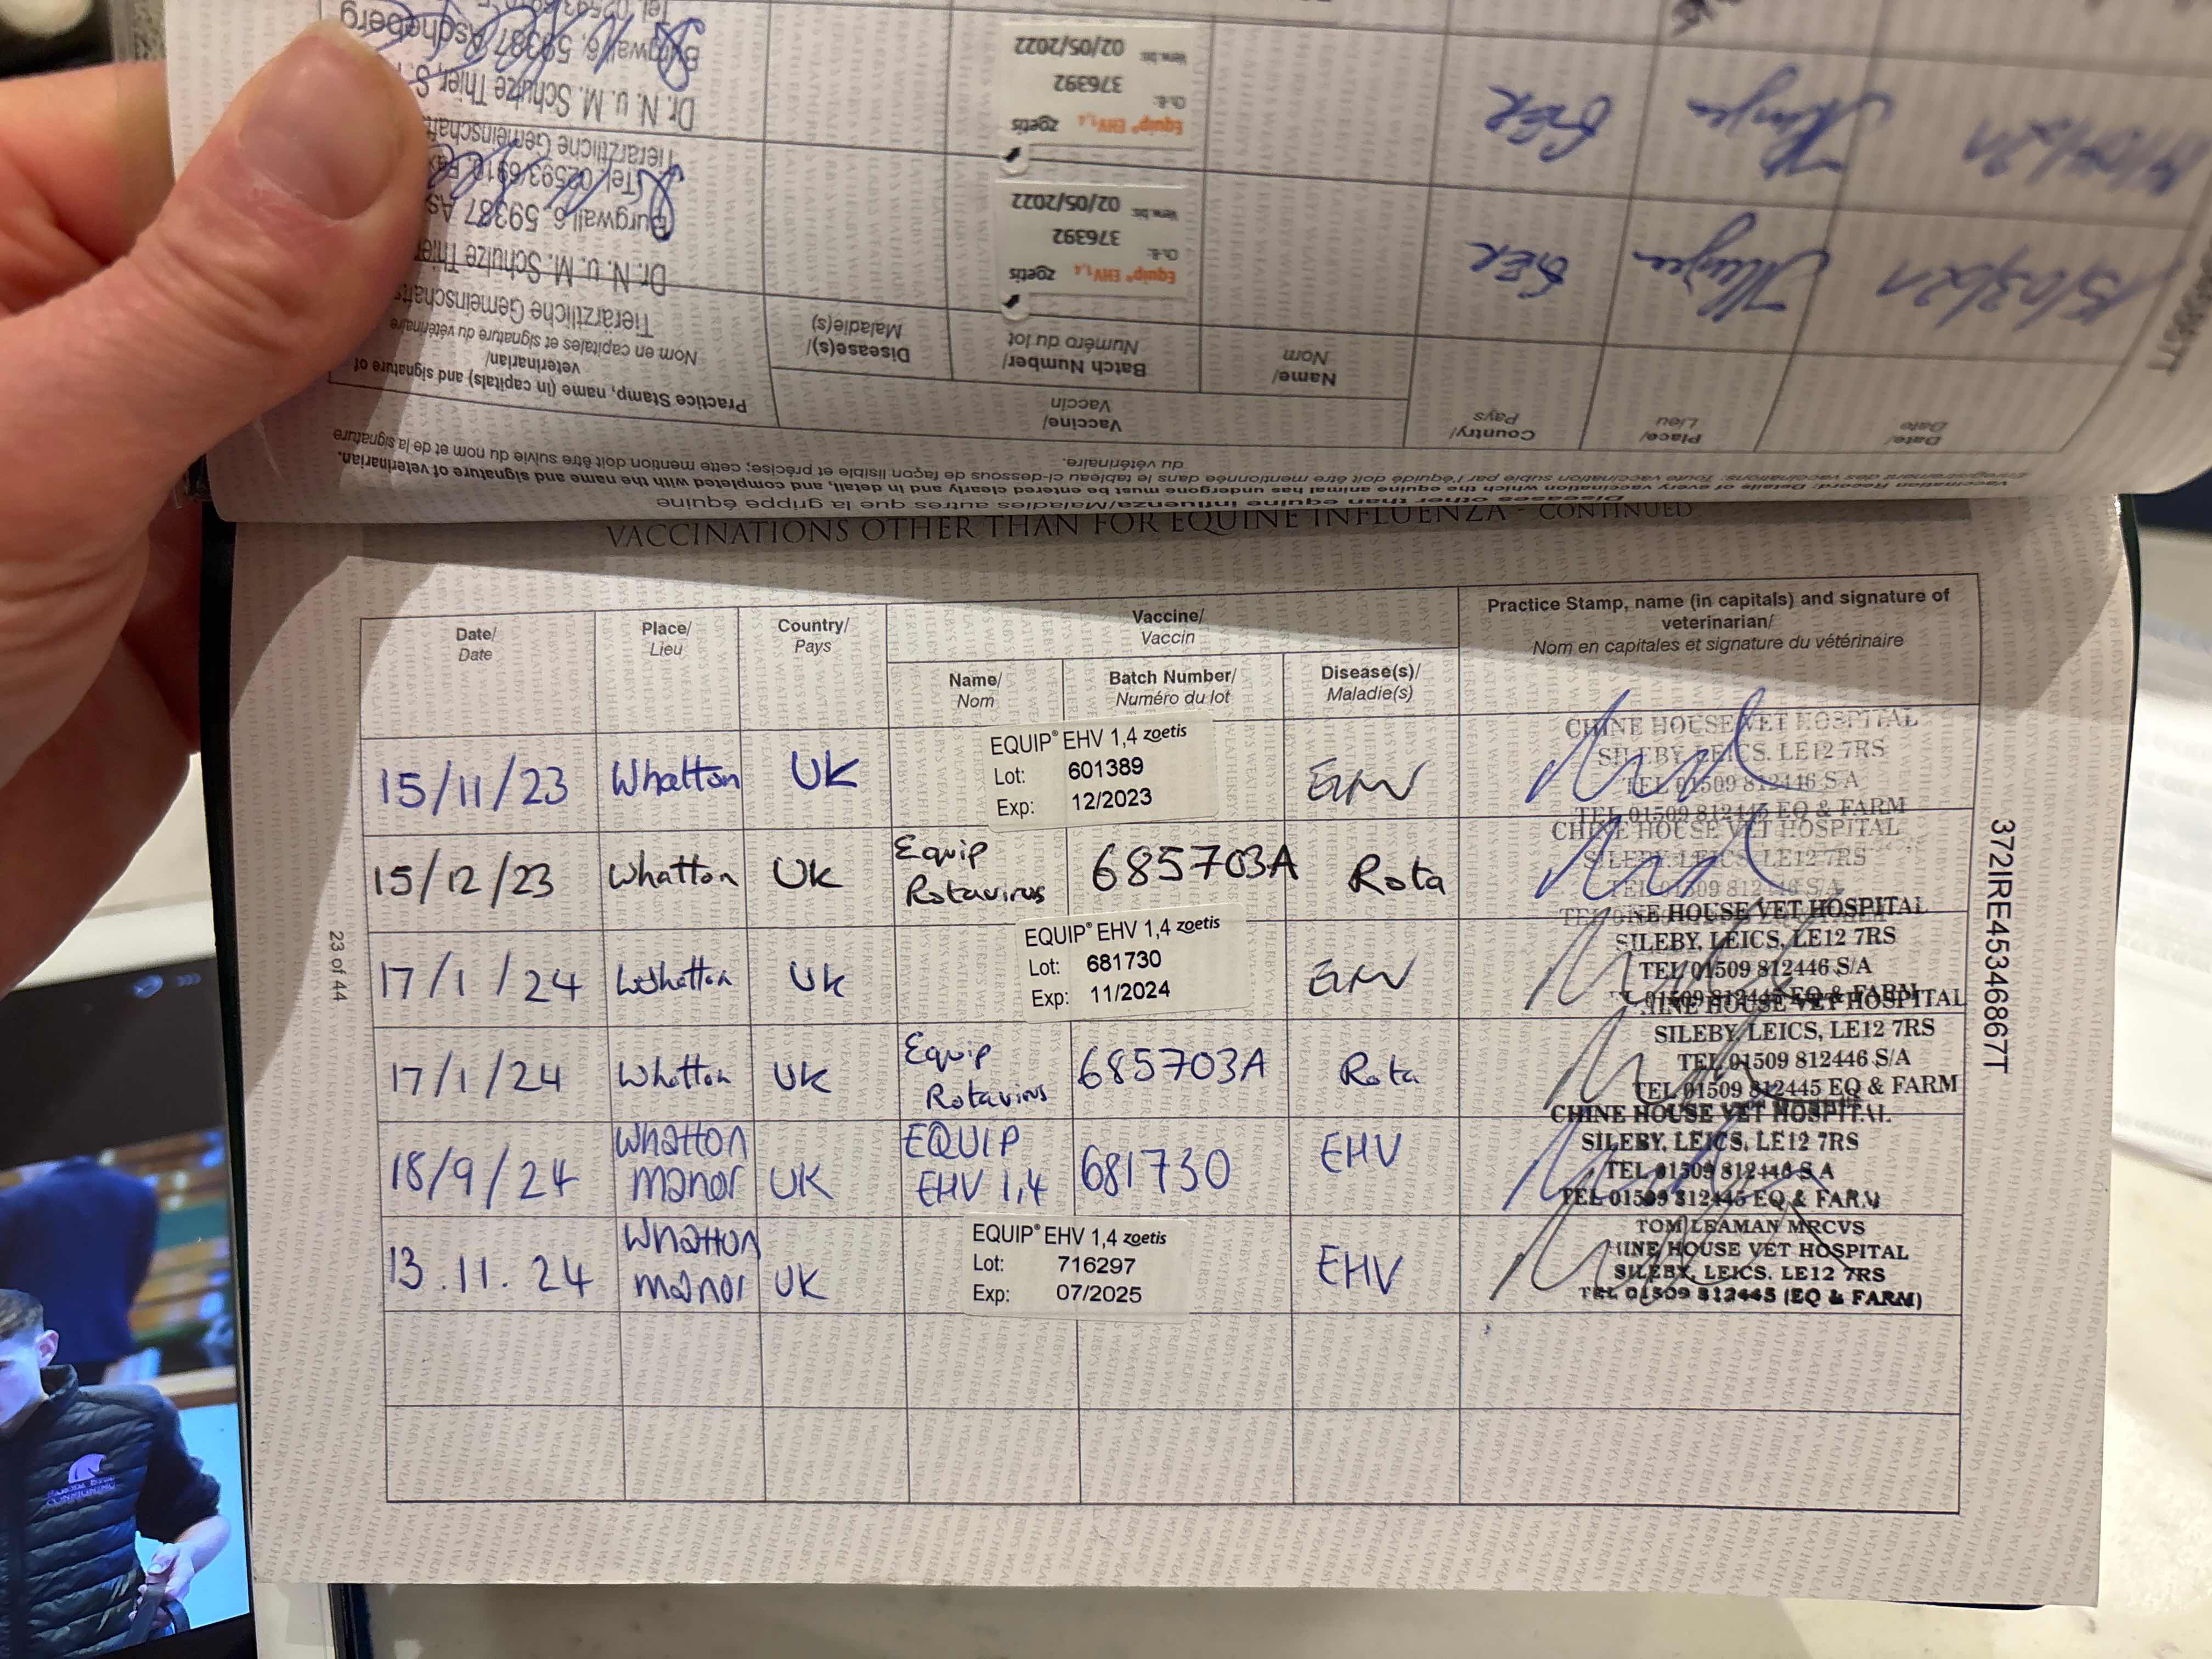 VACCINATIONS OTHER THAN FOR EQUINE INFLUENZA - CONTINUED
Date/
Date
Place/
Lieu
Country/
Pays
Vaccine/
Vaccin
Name/
Nom
Batch Number/
Numéro du lot
Disease(s)/
Maladie(s)
Practice Stamp, name (in capitals) and signature of
veterinarian/
Nom en capitales et signature du vétérinaire
15/11/23 Whatton UK
EQUIP® EHV 1,4 zoetis
Lot: 601389
Exp: 12/2023
EHV
CHINE HOUSE VET HOSPITAL
SILEBY, LEICS. LE12 7RS
TEL 01509 812446 S A
TEL 01509 812445 EQ & FARM
15/12/23 Whatton UK
Equip
Rotavirus
685703A
Rota
CHINE HOUSE VET HOSPITAL
SILEBY, LEICS, LE12 7RS
TEL 01509 812446 S/A
17/1/24 Whatton UK
EQUIP® EHV 1,4 zoetis
Lot: 681730
Exp: 11/2024
EHV
HOUSE VET HOSPITAL
SILEBY, LEICS, LE12 7RS
TEL 01509 812446 S/A
01509 812445 EQ & FARM
17/1/24 Whatton UK
Equip
Rotavirus
685703A
Rota
HOUSE VET HOSPITAL
SILEBY, LEICS, LE12 7RS
TEL 01509 812446 S/A
TEL 01509 812445 EQ & FARM
18/9/24
Whatton
manor
UK
EQUIP
EHV 1,4
681730
EHV
CHINE HOUSE VET HOSPITAL.
SILEBY, LEICS, LE12 7RS
TEL 01509 812446 S A
TEL 01509 812445 EQ & FARM
13.11.24
Whatton
manor
UK
EQUIP® EHV 1,4 zoetis
Lot: 716297
Exp: 07/2025
EHV
TOM LEAMAN MRCVS
HOUSE VET HOSPITAL
SILEBY, LEICS. LE12 7RS
TEL 01509 812445 (EQ & FARM)
23 of 44
372IRE45346867T
Diseases other than equine influenza/Maladies autres que la grippe équine
Vaccination Record: Details of every vaccination which the equine animal has undergone must be entered clearly and in detail, and completed with the name and signature of veterinarian.
Enregistrement des vaccinations: Toute vaccination subie par l'équidé doit être mentionnée dans le tableau ci-dessous de façon lisible et précise; cette mention doit être suivie du nom et de la signature
du vétérinaire.
Date/
Date
Place/
Lieu
Country/
Pays
Vaccine/
Vaccin
Name/
Nom
Batch Number/
Numéro du lot
Disease(s)/
Maladie(s)
Practice Stamp, name (in capitals) and signature of
veterinarian/
Nom en capitales et signature du vétérinaire
15/03/21
GER
Equip® EHV 1,4 zoetis
Ch-B.:
376392
Verw. bis: 02/05/2022
Tierärztliche Gemeinschaft
Dr. N. u. M. Schulze Thier
Burgwall 6, 59387 As
Tel. 02593/6910
GER
Equip® EHV 1,4 zoetis
Ch-B.:
376392
Verw. bis: 02/05/2022
Tierärztliche Gemeinschaft
Dr. N. u. M. Schulze Thier, S.
Burgwall 6, 59387 Ascheberg
CONSIGNING